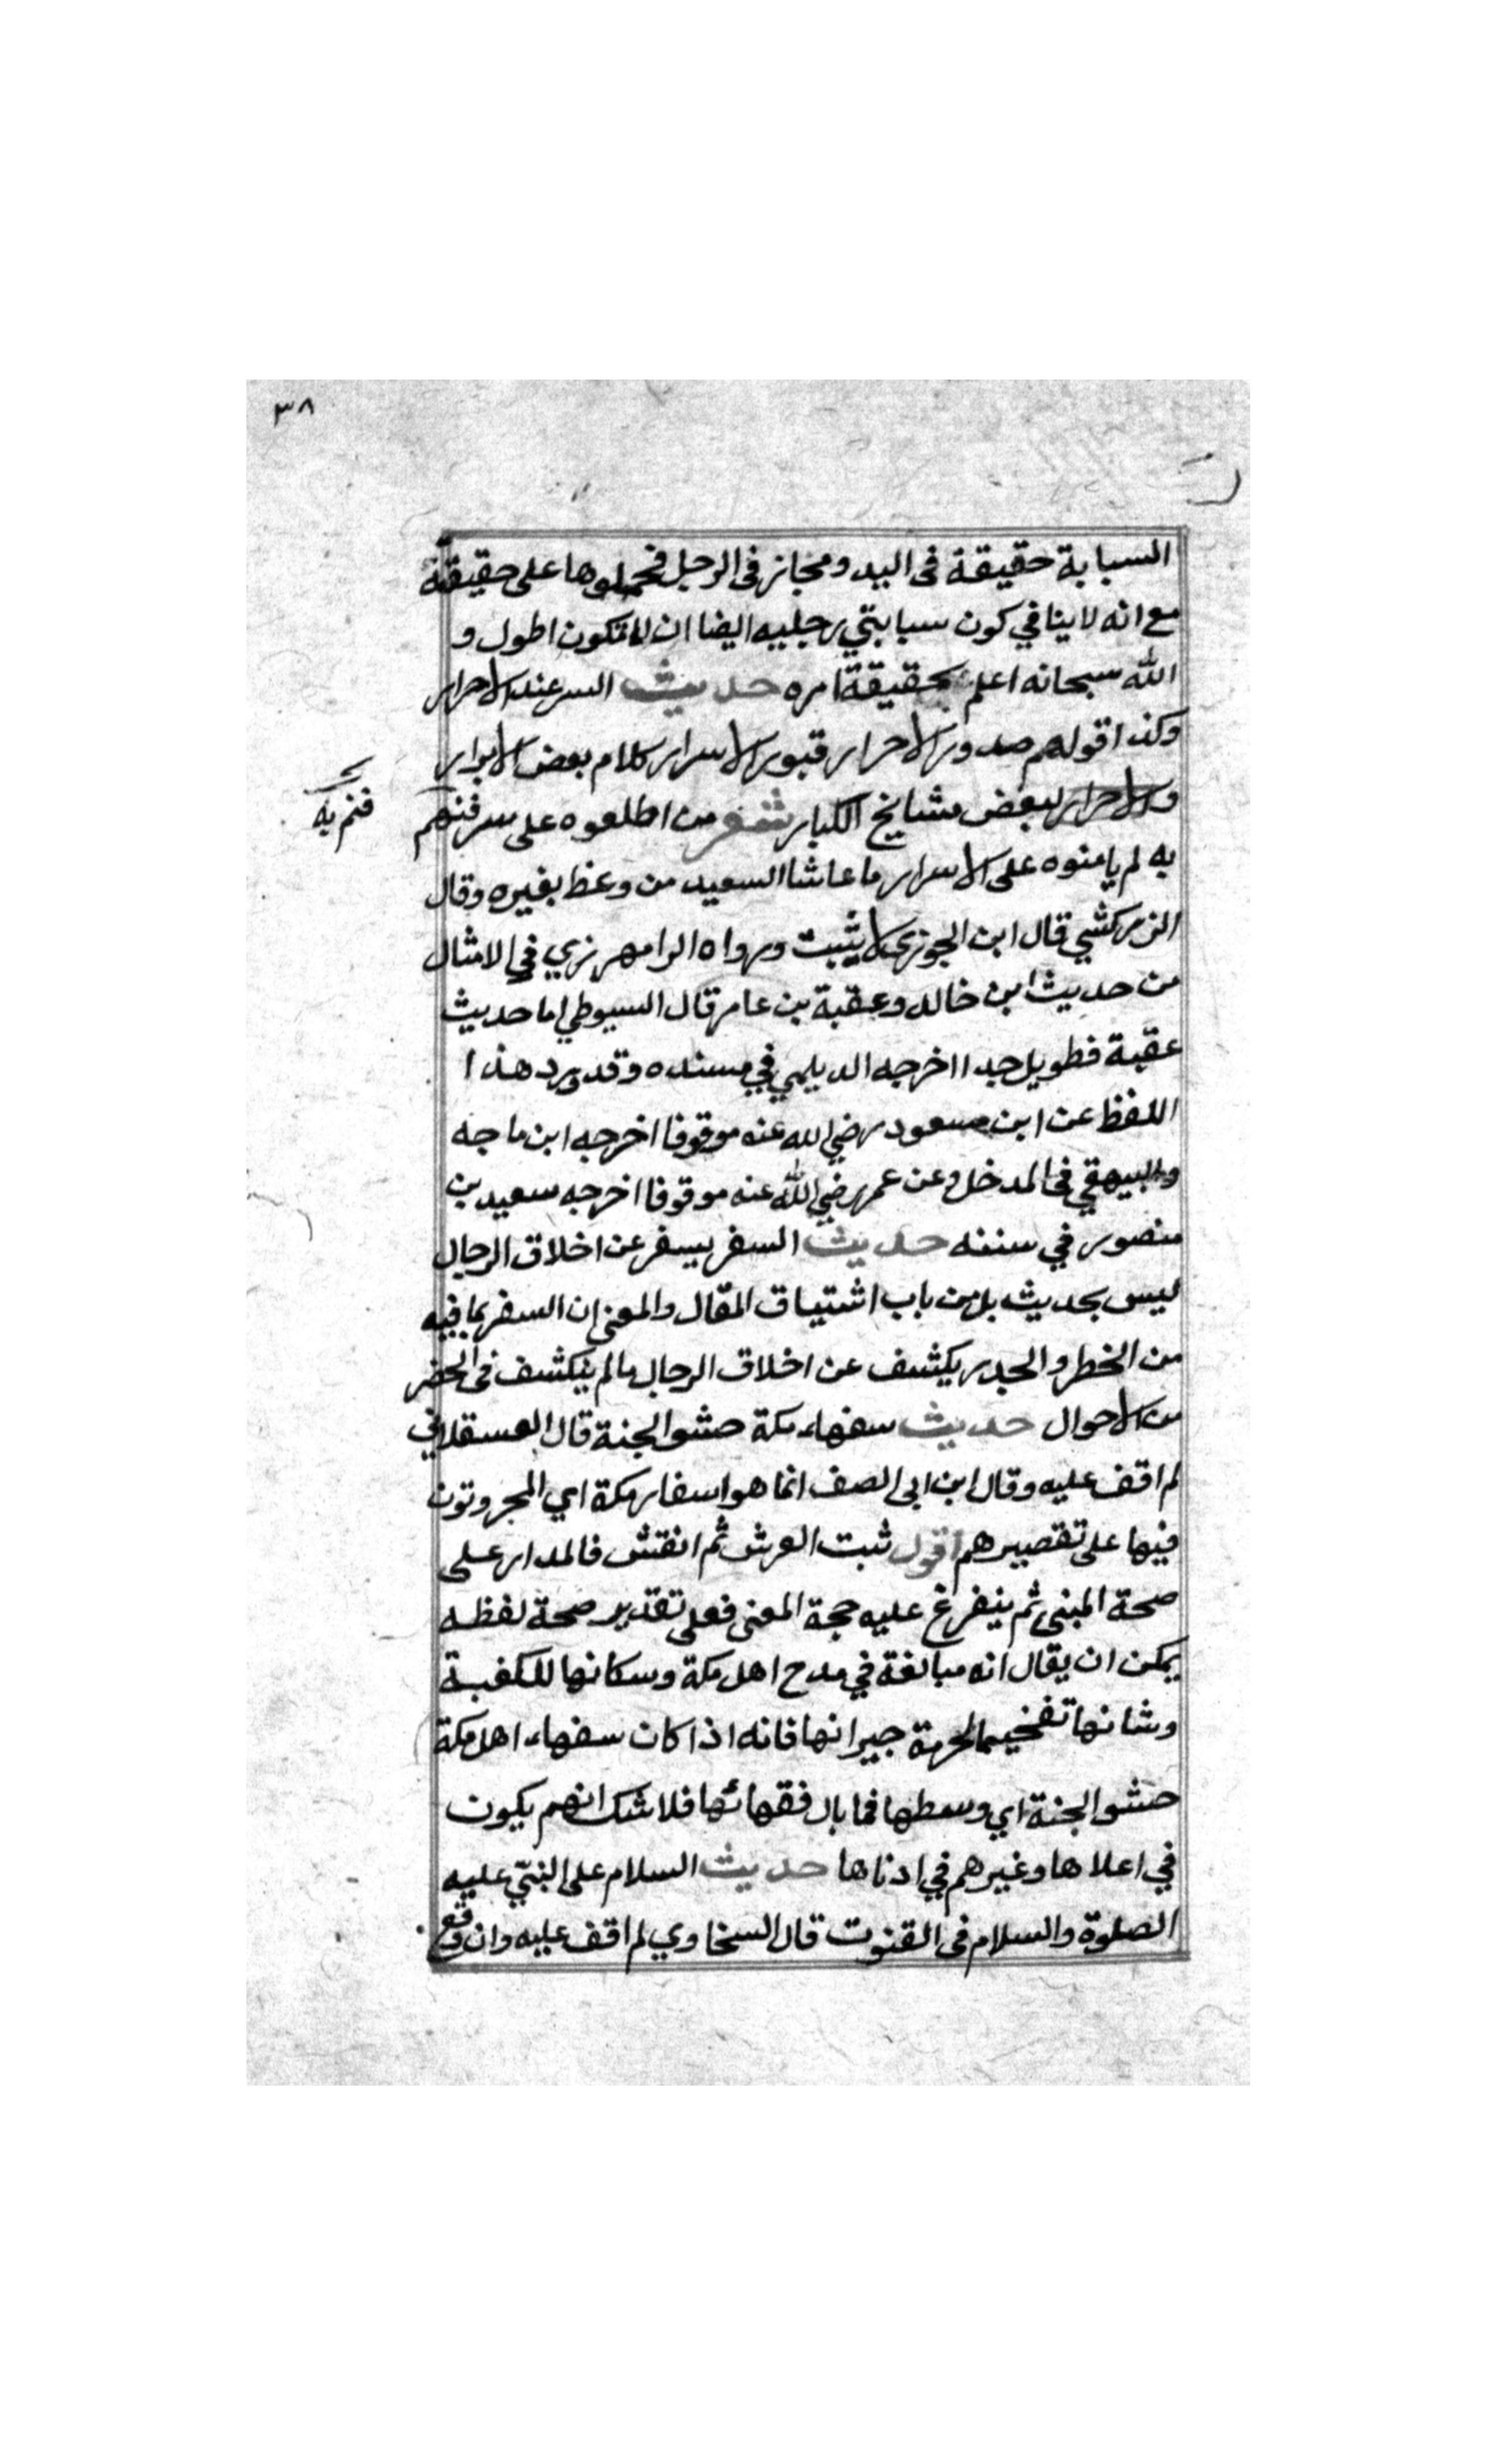 ٣٨
السبابة حقيقة فى اليد ومجاز فى الرجل فحملوها على حقيقة
مع انه لا ينافي كون سبابتي رجليه ايضا ان لا تكون اطول و
الله سبحانه اعلم بحقيقة امره حديث السر عند الاحرار
وكذا قولهم صدور الاحرار قبور الاسرار كلام بعض الابرار
والاحرار لبعض مشايخ الكبار شعر من اطلعوه على سر فنم
به لم يامنوه على الاسرار ما عاشا السعيد من وعظ بغيره وقال
فنم به
الزركشي قال ابن الجوزى لا يثبت ورواه الرامهرزي في الامثال
من حديث ابن خالد وعقبة بن عامر قال السيوطي اما حديث
عقبة فطويل جدا اخرجه الديلمي في مسنده وقد ورد هذا
اللفظ عن ابن مسعود رضي الله عنه موقوفا اخرجه ابن ماجه
والبيهقي فى المدخل وعن عمر رضي الله عنه موقوفا اخرجه سعيد بن
منصور في سننه حديث السفر يسفر عن اخلاق الرجال
ليس بحديث بل من باب اشتياق المقال والمعنى ان السفر بما فيه
من الخطر والحدر يكشف عن اخلاق الرجال ما لم ينكشف فى الحضر
من الاحوال حديث سفهاء مكة حشو الجنة قال العسقلاني
لم اقف عليه وقال ابن ابى الصف انما هو اسفار مكة اي المجروتون
فيها على تقصيرهم اقول ثبت العرش ثم انقش فالمدار على
صحة المبنى ثم ينفرع عليه حجة المعنى فعلى تقدير صحة لفظه
يمكن ان يقال انه مبالغة في مدح اهل مكة وسكانها للكعبة
وشانها تفخيما لحرمة جيرانها فانه اذا كان سفهاء اهل مكة
حشو الجنة اي وسطها فما بال فقهائها فلا شك انهم يكون
في اعلاها وغيرهم في ادناها حديث السلام على النبي عليه
الصلوة والسلام فى القنوت قال السخاوي لم اقف عليه وان وقع